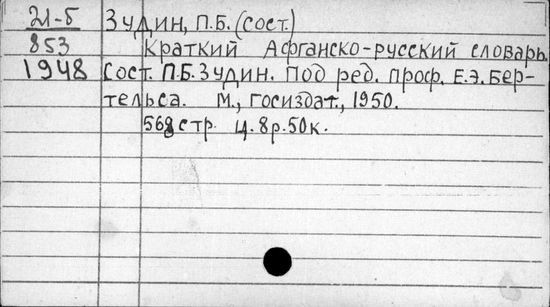 21-5 Зудин, П.Б. (сост.)
853 Краткий Афганско-русский словарь.
1948 Сост. П.Б. Зудин. Под ред. проф. Е.Э. Бер-
тельса. М., Госиздат., 1950.
568 стр. ц. 8р.50к.